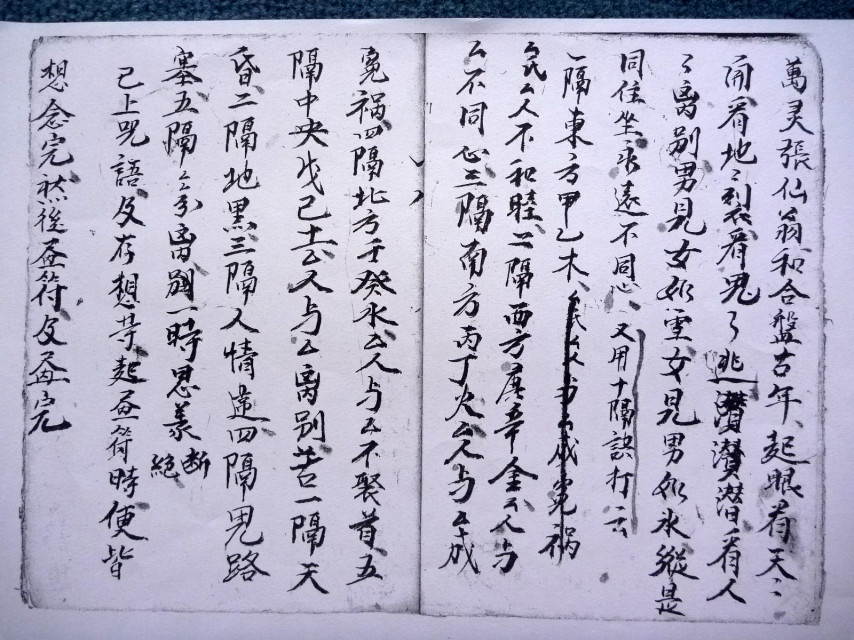 萬灵張仙翁和合盤古年、起眼看天〻
開看地〻裂看鬼〻逃潛看人
〻离别男見女如雪女見男如氷縱是
同住坐永遠不同心、又用十隔訣打云
一隔東方甲乙木、厶氏厶人与厶成冤禍
厶氏厶人不和睦、二隔西方庚辛金厶人与
厶不同心三隔南方丙丁火厶人与厶成
冤禍四隔北方壬癸水厶人与厶不聚首五
隔中央戊己土厶人与厶离别苦一隔天
昏二隔地黑三隔人情違四隔鬼路
塞五隔分离别一時恩義断絶
已上咒語及存想等起画符時便皆
想念完然後画符及画完